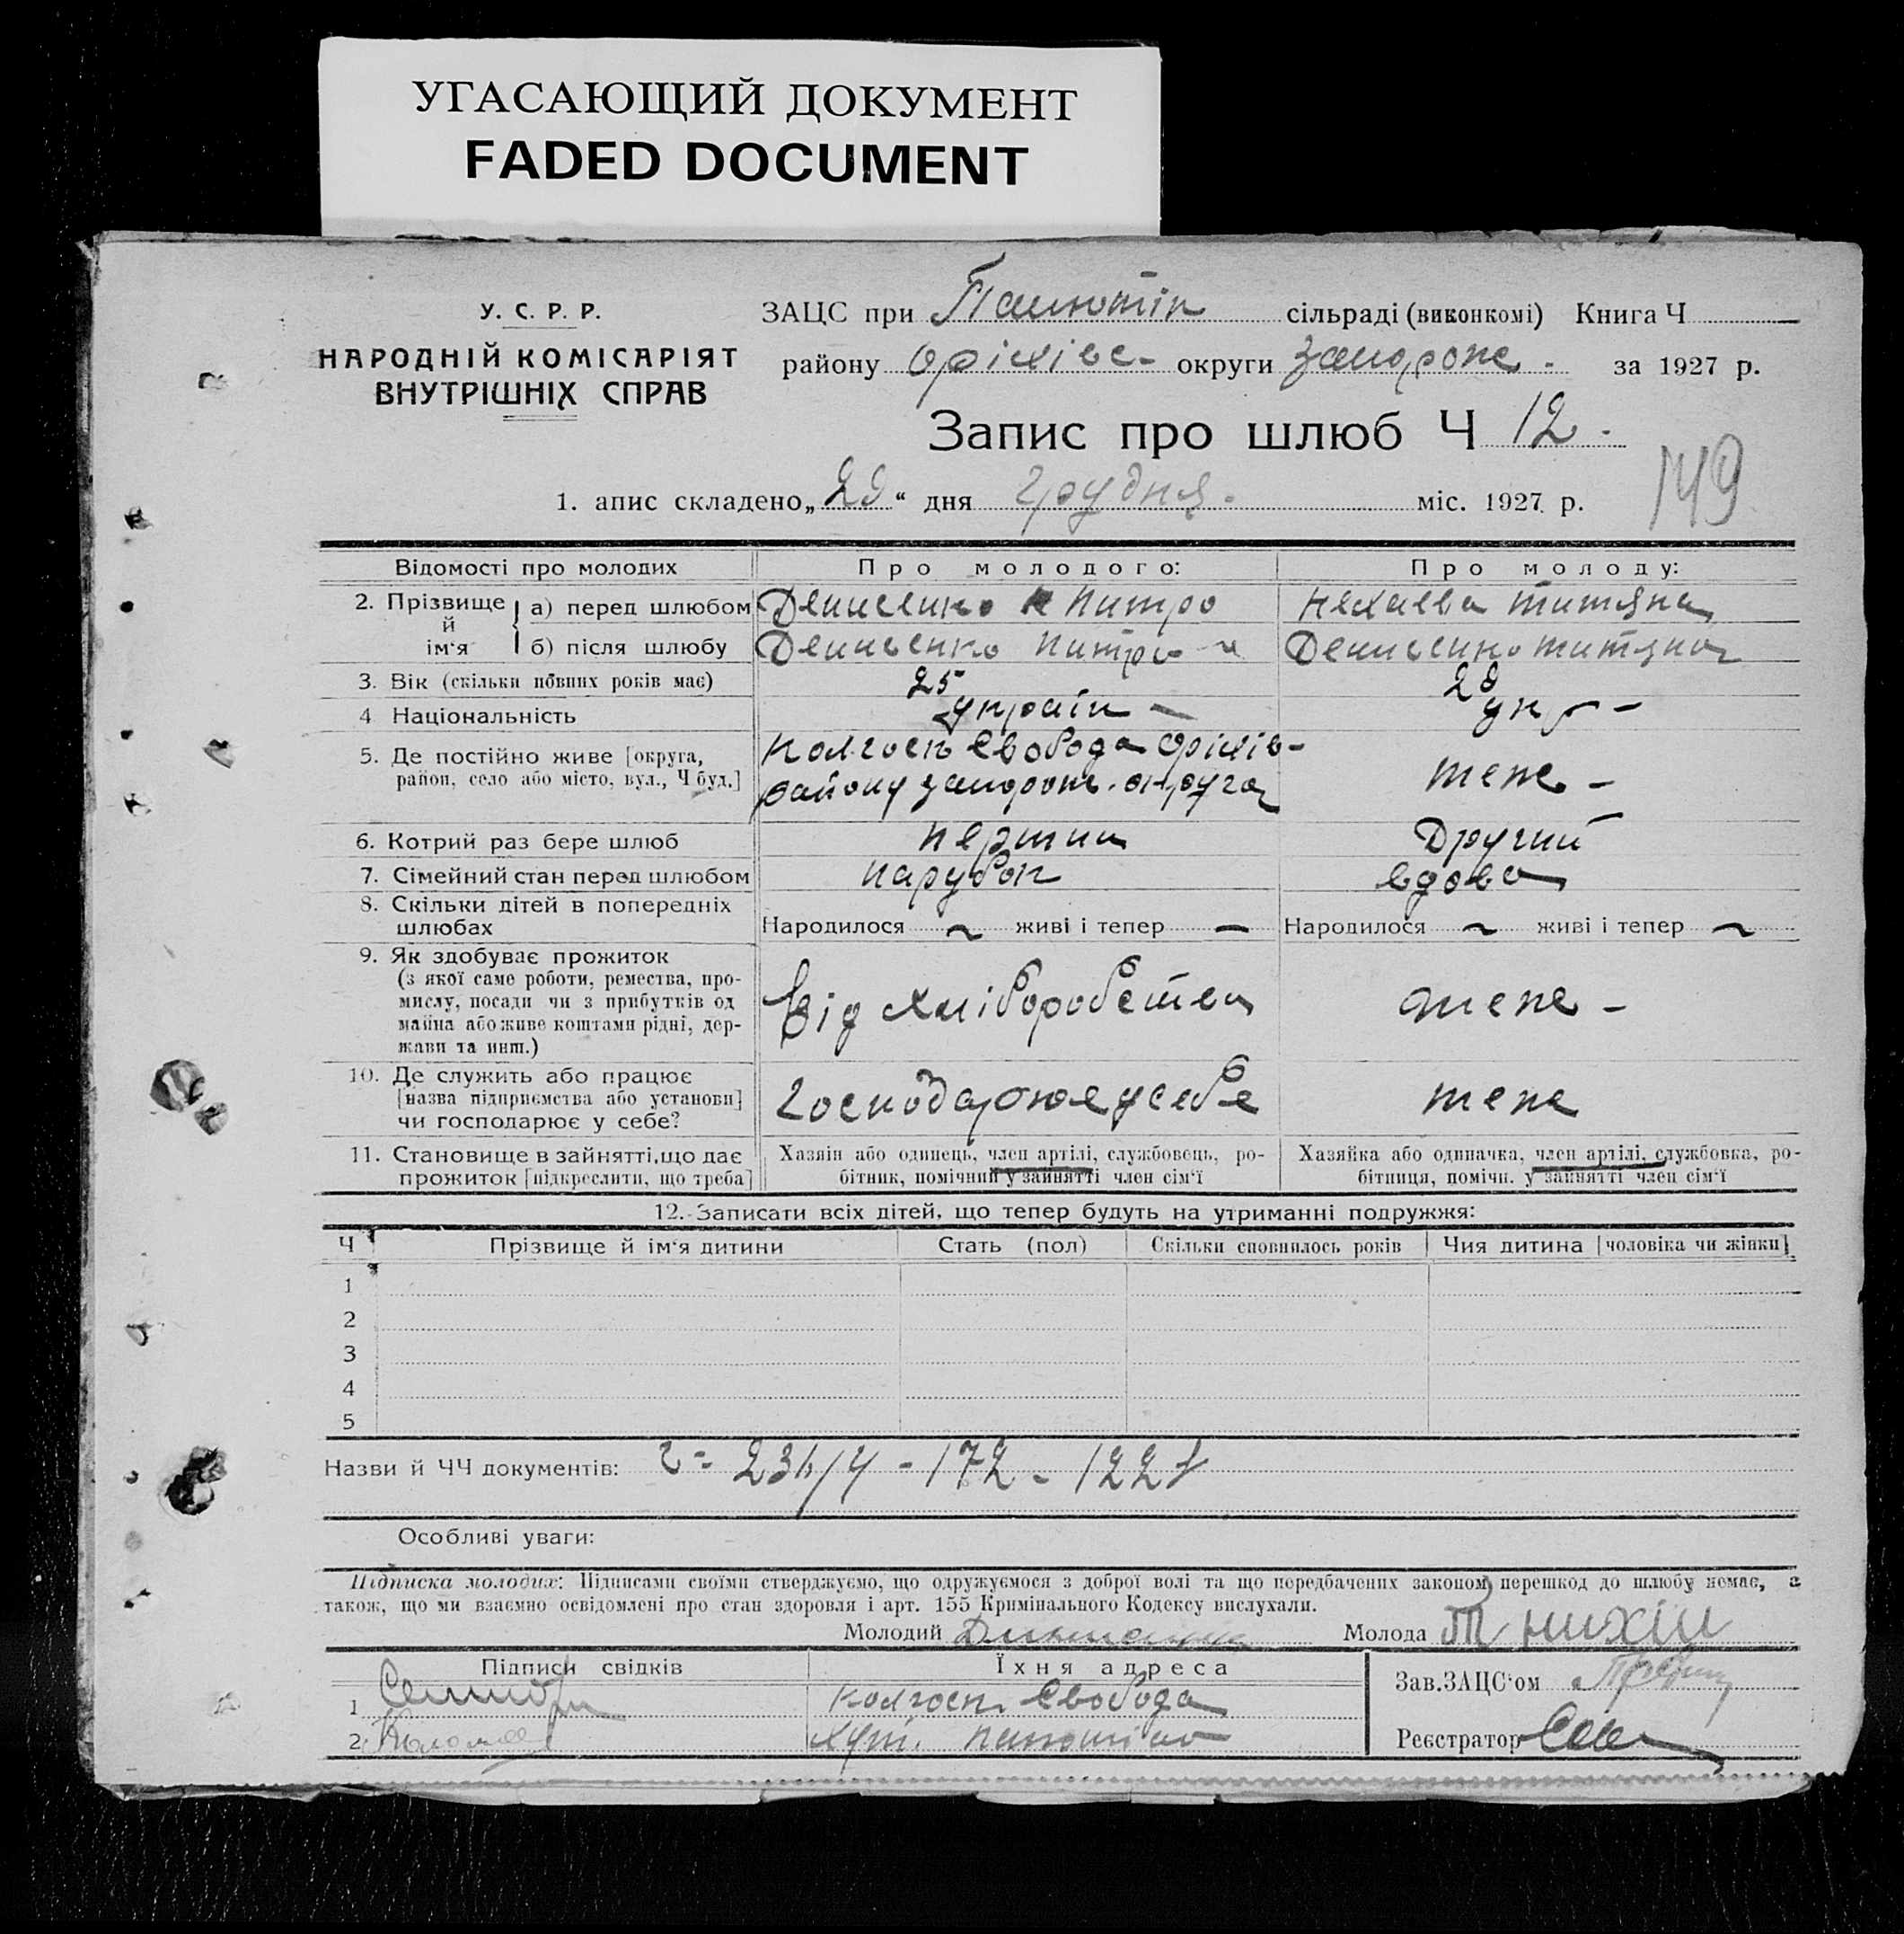 УГАСАЮЩИЙ ДОКУМЕНТ
FADED DOCUMENT
У. С. Р. Р.
НАРОДНІЙ КОМІСАРІЯТ
ВНУТРІШНІХ СПРАВ
ЗАЦС при Панютін сільраді (виконкомі) Книга Ч
району Оріхівс- округи Запорож. за 1927 р.
Запис про шлюб Ч 12.
149
1. апис складено „29“ дня Грудня. міс. 1927 р.
Відомості про молодих Про молодого: Про молоду:
2. Прізвище й ім‘я
а) перед шлюбом Денисенко Питро Нехаева Титяна
б) після шлюбу Денисенко Питро Денисенко Титяна
3. Вік (скільки повних років має) 25 29
4 Національність україн укр
5. Де постійно живе [округа, район, село або місто, вул., Ч буд.]
Колгосп Свобода Оріхів-
району запорож. округа
теже
6. Котрий раз бере шлюб перший Другий
7. Сімейний стан перед шлюбом парубок вдова
8. Скільки дітей в попередніх шлюбах
Народилося ~ живі і тепер — Народилося ~ живі і тепер ~
9. Як здобуває прожиток
(з якої саме роботи, ремества, про-
мислу, посади чи з прибутків од
майна або живе коштами рідні, дер-
жави та инш.)
Від хліборобства теже -
10. Де служить або працює
[назва підприємства або установи]
чи господарює у себе?
Господарюе у себе теже
11. Становище в зайнятті, що дає
прожиток [підкреслити, що треба]
Хазяїн або одинець, член артілі, службовець, ро-
бітник, помічний у зайнятті член сім‘ї
Хазяйка або одиначка, член артілі, службовка, ро-
бітниця, помічн. у зайнятті член сім‘ї
12. Записати всіх дітей, що тепер будуть на утриманні подружжя:
Ч Прізвище й ім‘я дитини Стать (пол) Скільки сповнилось років Чия дитина [чоловіка чи жінки]
1
2
3
4
5
Назви й ЧЧ документів:
Особливі уваги:
Підписка молодих: Підписами своїми стверджуємо, що одружуємося з доброї волі та що передбачених законом перешкод до шлюбу немає, а
також, що ми взаємно освідомлені про стан здоровля і арт. 155 Кримінального Кодексу вислухали.
Молодий Молода
Підписи свідків Їхня адреса Зав.ЗАЦС‘ом
1 колгосп Свобода
2 Хут.
Реєстратор